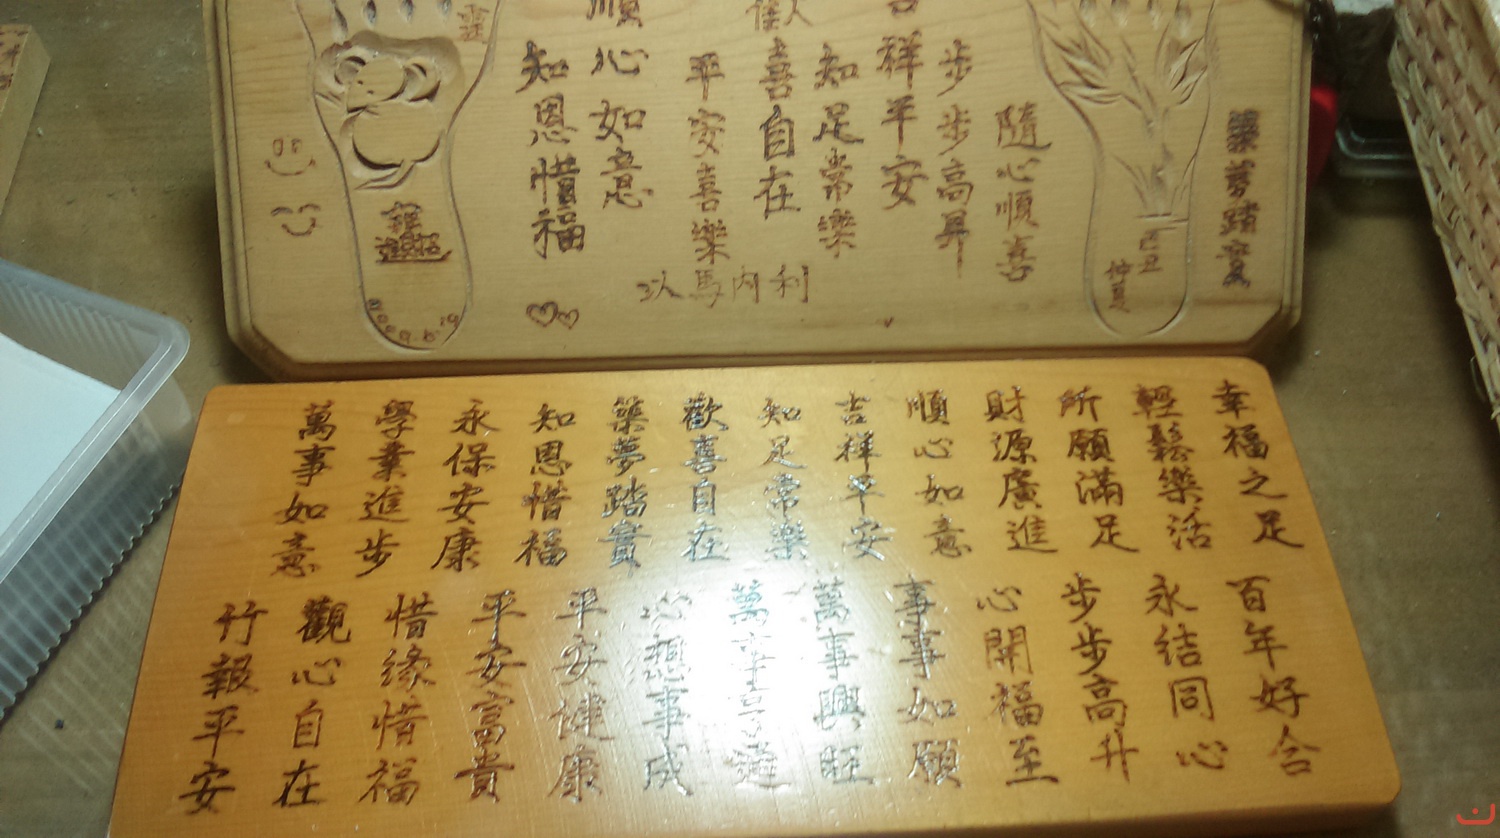 築夢踏實
隨心順喜
步步高昇
吉祥平安
知足常樂
歡喜自在
平安喜樂
以馬內利
順心如意
知恩惜福
幸福之足
輕鬆樂活
所願滿足
財源廣進
順心如意
吉祥平安
知足常樂
歡喜自在
築夢踏實
知恩惜福
永保安康
學業進步
萬事如意
百年好合
永結同心
步步高升
心開福至
事事如願
萬事興旺
萬事亨通
心想事成
平安健康
平安富貴
惜緣惜福
觀心自在
竹報平安